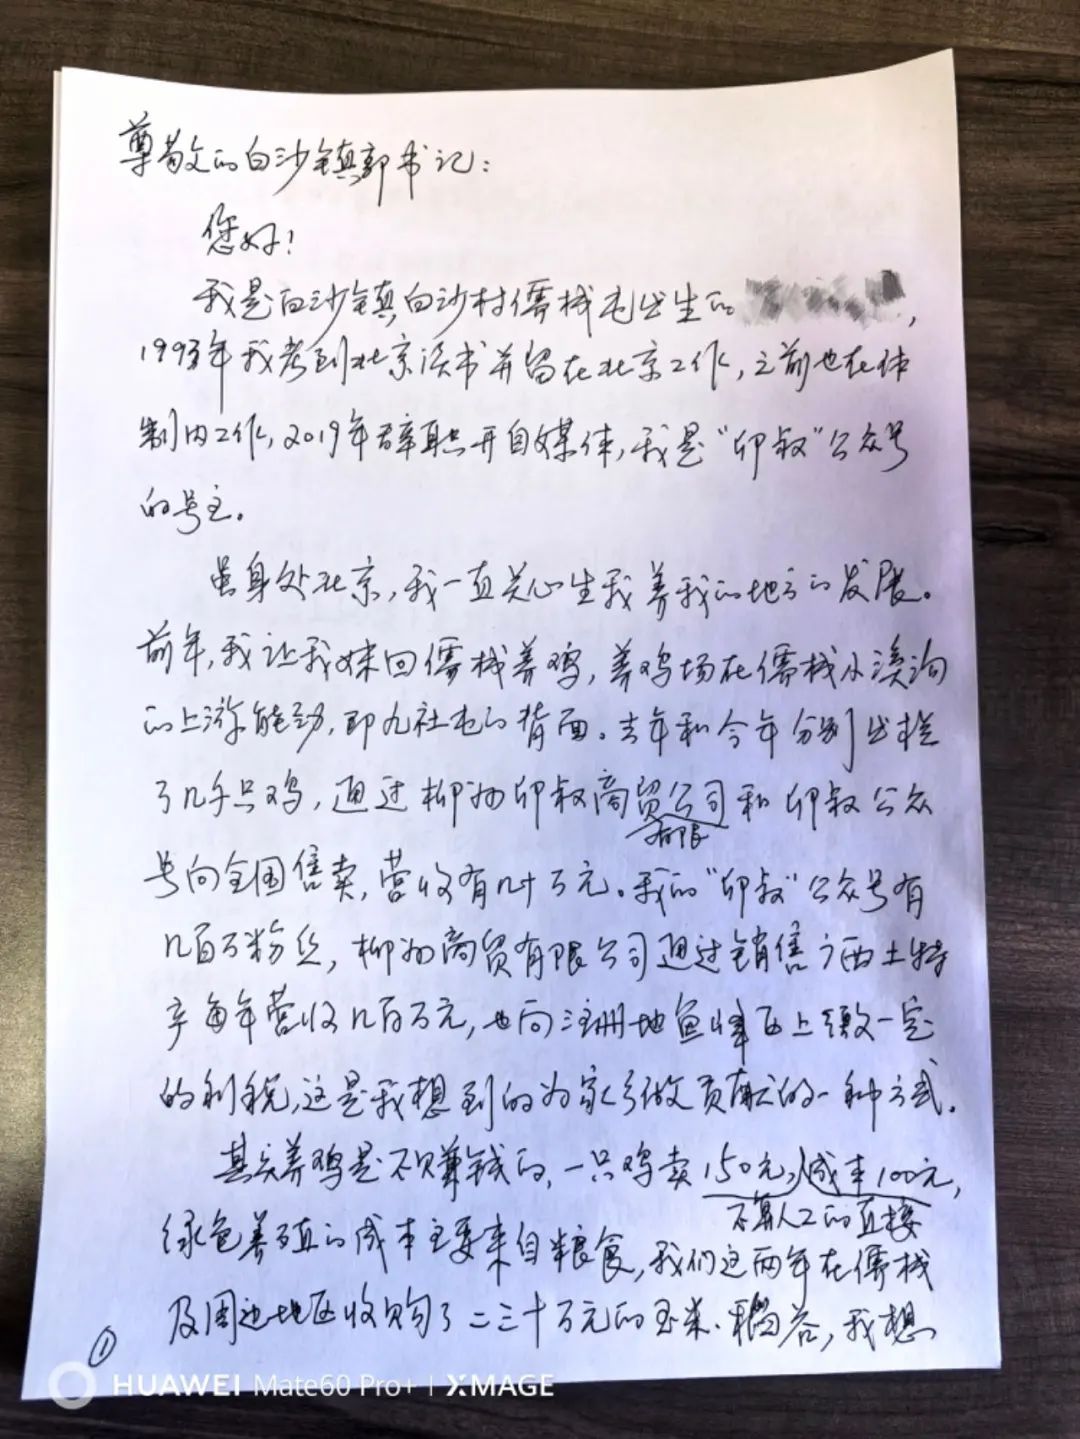 尊敬的白沙镇郭书记：
您好！
我是白沙镇白沙村儒栈屯出生的
，
1993年我考到北京读书并留在北京工作，之前也在体
制内工作，2019年辞职开自媒体，我是“卯叔”公众号
的号主。
虽身处北京，我一直关心生我养我的地方的发展。
前年，我让我妹回儒栈养鸡，养鸡场在儒栈小溪沟
的上游能劲，即九社屯的背面。去年和今年分别出栏
了几千只鸡，通过柳州卯叔商贸公司和卯叔公众
有限
号向全国售卖，营收有几十万元。我的“卯叔”公众号有
几百万粉丝，柳州商贸有限公司通过销售广西土特
产每年营收几百万元，也向注册地鱼峰区上缴一定
的利税，这是我想到的为家乡做贡献的一种方式。
其实养鸡是不赚钱的，一只鸡卖150元，成本100元，
不算人工的直接
绿色养殖的成本主要来自粮食，我们这两年在儒栈
及周边地区收购了二三十万元的玉米、稻谷，我想
①
HUAWEI Mate60 Pro+ | XMAGE